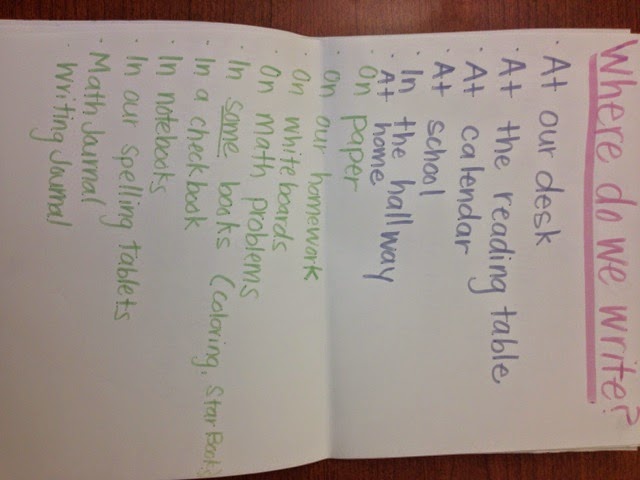 Where do we write?
· At our desk
· At the reading table
· At calendar
· At school
· In the hallway
· At home
· On paper
· On our homework
· On whiteboards
· On math problems
· In some books (coloring, Star Books
· In a checkbook
· In notebooks
· In our spelling tablets
· Math Journal
Writing Journal